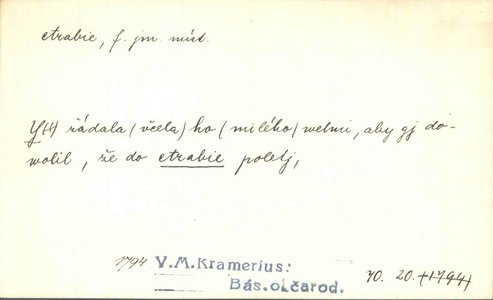 etrabie, f. jm. míst.
Y(t) žádala (včela) ho (milého) welmi, aby gj do-
wolil, že do etrabie poletj,
1794 V.M.Kramerius:
Bás.o.čarod.
70. 20. (1794)